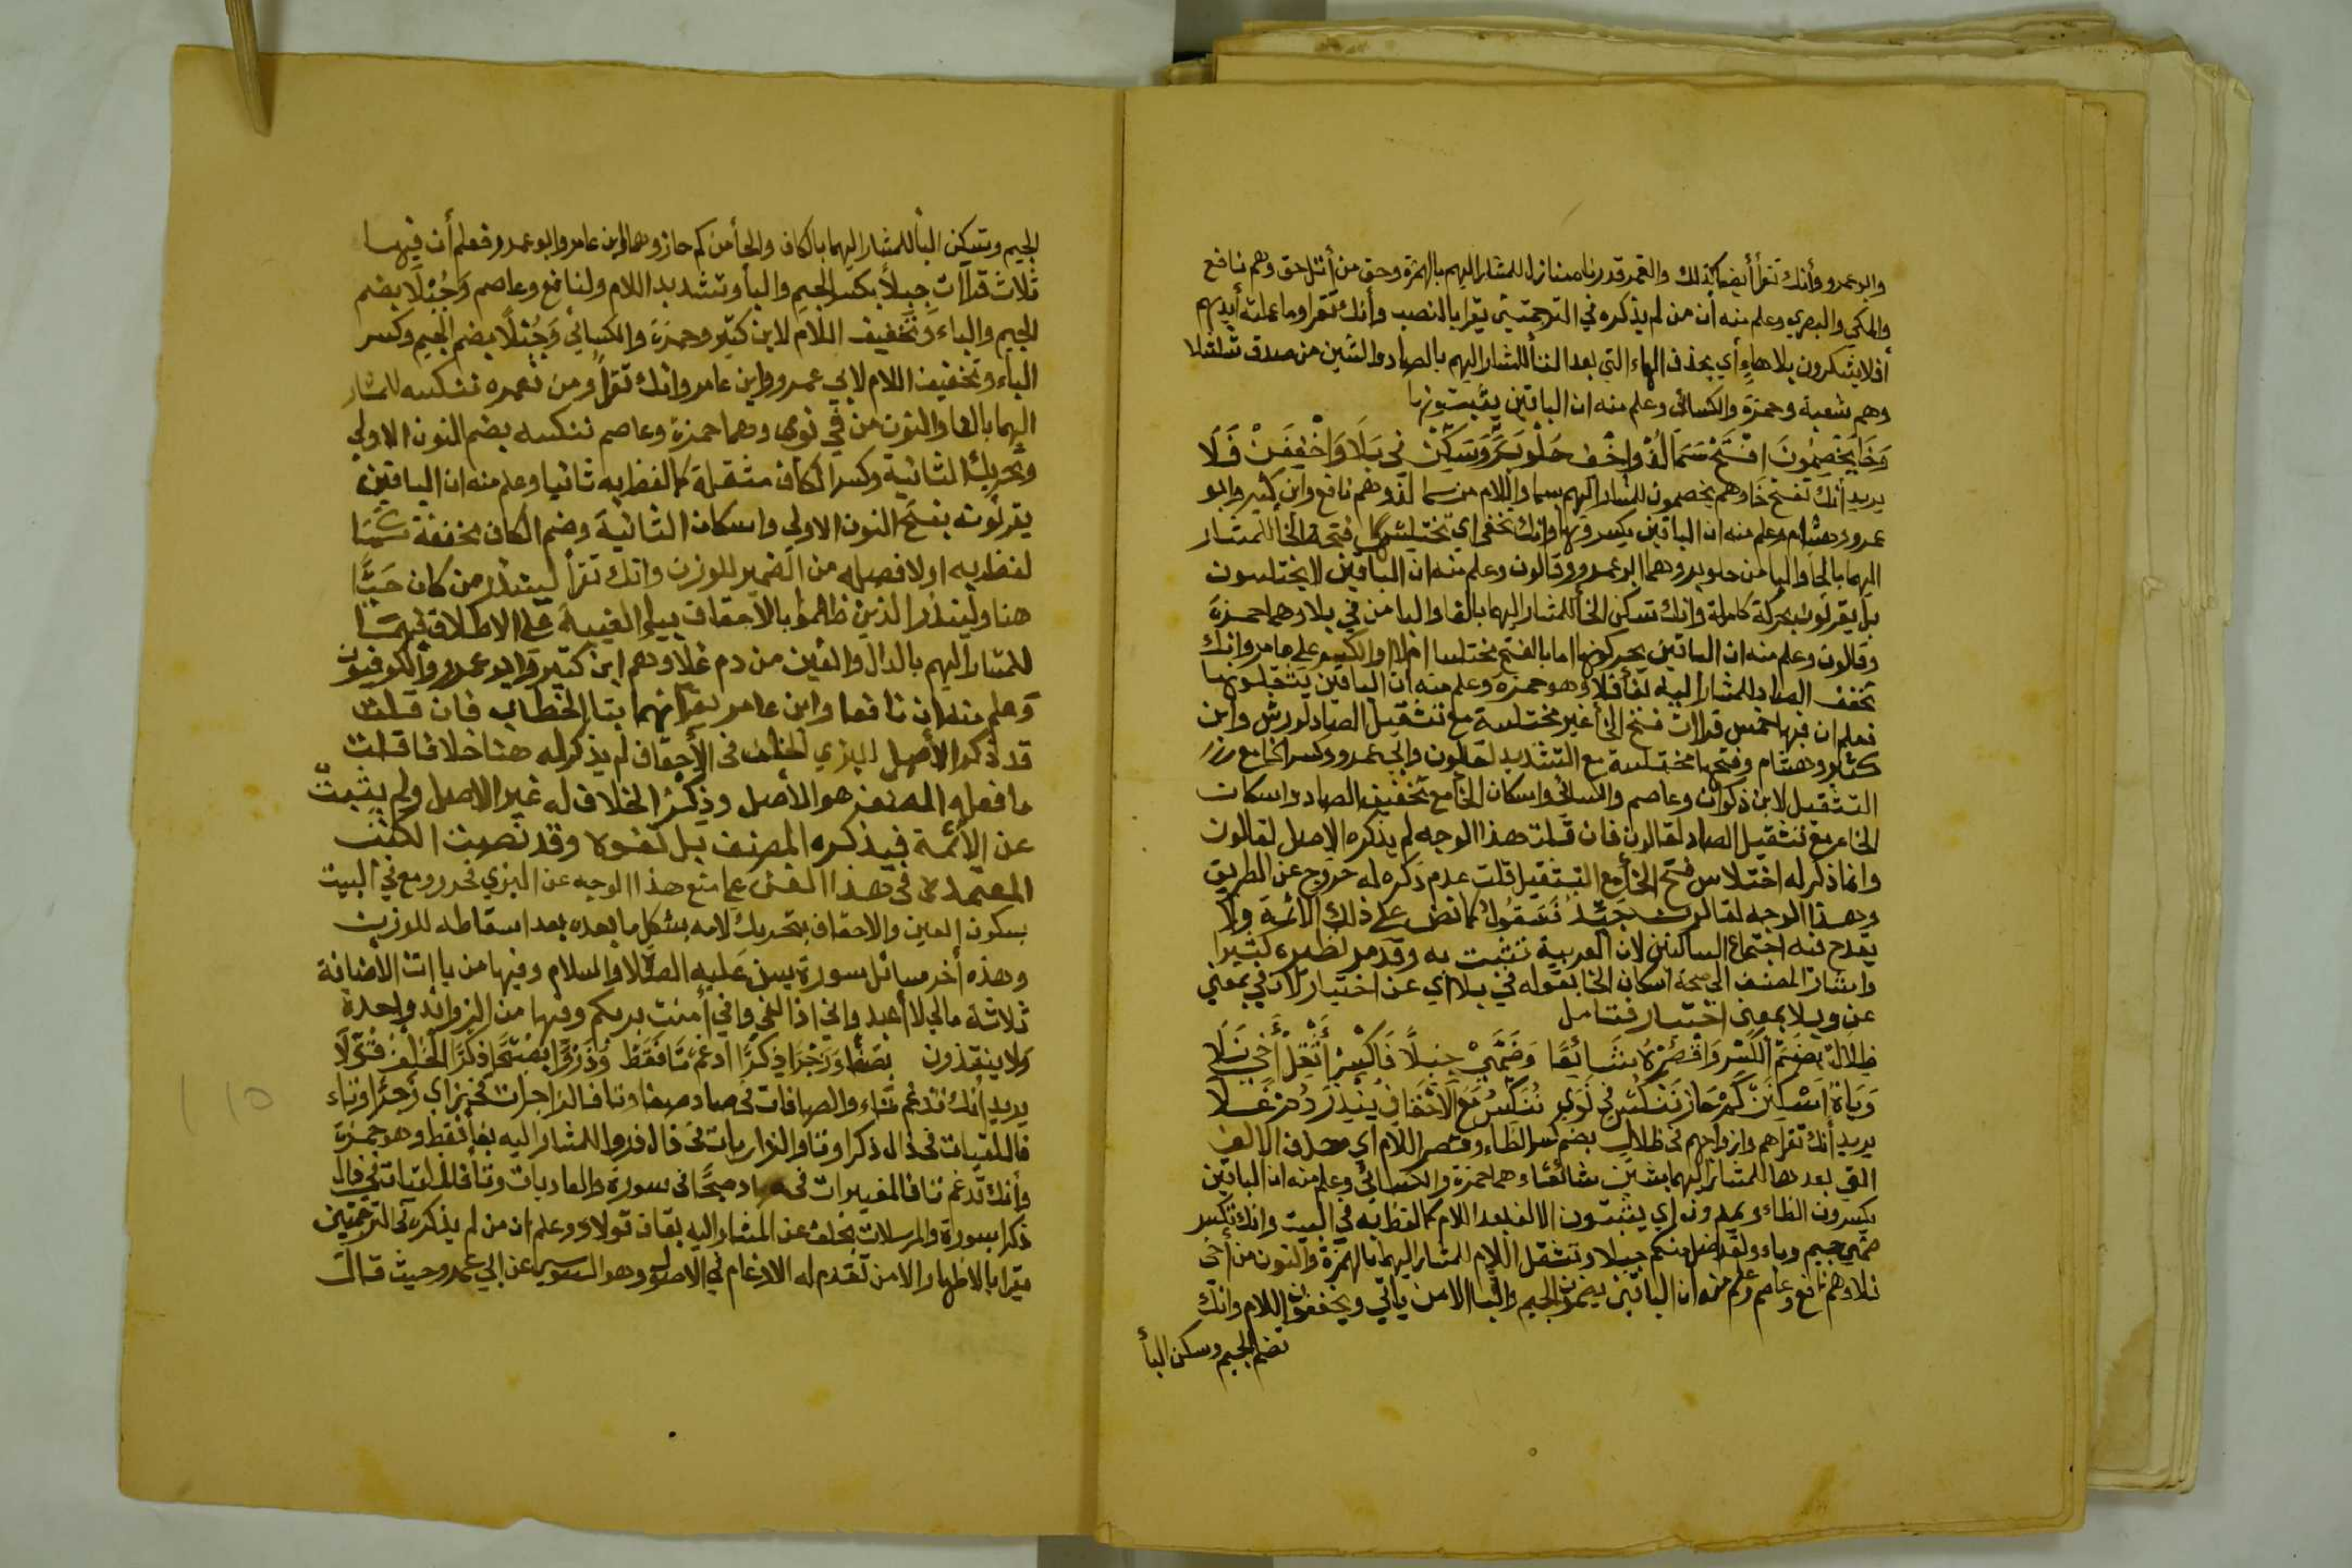 وابو عمرو وأنك تقرأ أيضا كذلك والقمر قدرناه منازل للمشار اليهم بالهمزة وحق من أثل حق وهم نافع
والمكي والبصري وعلم منه أن من لم يذكره في الترجمتين يقرا بالنصب وأنك تقرا وما عملته أيديهم
أفلا يشكرون بلا هاء أي بحذف الهاء التي بعد التا للمشار اليهم بالصاد والشين من صدق شلشلا
وهم شعبة وحمزة والكسائي وعلم منه ان الباقين يثبتونها
وَخَا يَخْصِمُونَ افْتَحْ سَمَا لُذْ وَاخْفِ حُلْوَ بَرٍّ وَسَكِّنْ فِي بَلَا وَاخْفِفَنْ فَلَا
يريد أنك تفتح خا وهم يخصمون للمشار اليهم بسما واللام من سما لذ وهم نافع وابن كثير وابو
عمرو وهشام وعلم منه ان الباقين يكسرونها وانك تخفي اي تختلس فتحة الخا للمشار
اليهما بالحا والبا من حلو بر وهما ابو عمرو وقالون وعلم منه ان الباقين لا يختلسون
بل يقرؤن بحركة كاملة وانك تسكن الخا للمشار اليهما بالفا والبا من في بلا وهما حمزة
وقالون وعلم منه ان الباقين يحركونها اما بالفتح مختلسا ام لا او بالكسر على ما مر وانك
تخفف الصاد للمشار اليه بفا فلا وهو حمزة وعلم منه ان الباقين يثقلونها
فعلم ان فيها خمس قراات فتح الخا غير مختلسة مع تثقيل الصاد لورش وابن
كثير وهشام وفتحها مختلسة مع التشديد لقالون وابي عمرو وكسر الخا مع
التثقيل لابن ذكوان وعاصم والكسائي واسكان الخا مع تخفيف الصاد واسكان
الخا مع تثقيل الصاد لقالون فان قلت هذا الوجه لم يذكره الاصل لقالون
وانما ذكر له اختلاس فتح الخا مع التثقيل قلت عدم ذكره له خروج عن الطريق
وهذا الوجه لقالون جيد مقبول كما نص على ذلك الائمة ولا
يقدح فيه اجتماع الساكنين لان العربية تثبت به وقد مر نظيره كثيرا
واشار المصنف الى صحة اسكان الخا بقوله في بلا اي عن اختيار لان في بمعنى
عن وبلا بمعنى اختبار فتامل
ظِلَالٍ بِضَمِّ الْكَسْرِ وَاقْصُرْهُ شَائِعًا وَضَمَّيْ جِبِلًّا فَاكْسِرْ أَثْقِلْ أَخِي نَلَا
وَبَاهُ اسْكِنَنْ كَمْ حَازَ نَنْكُسْ فِي نَوَى نُنَكِّسْ مَعَ الْأَحْقَافِ يُنْذِرَ دُمْ غَلَا
يريد أنك تقرا هم وازواجهم في ظلال بضم كسر الظاء وقصر اللام أي حذف الالف
التي بعدها للمشار اليهما بشين شائعا وهما حمزة والكسائي وعلم منه ان الباقين
يكسرون الظاء ويمدون اي يثبتون الالف بعد اللام كما لفظ به في البيت وانك تكسر
ضمي جيم وباء ولقد اضل منكم جبلا وتثقل اللام للمشار اليهما بالهمزة والنون من أخي
نلا وهم نافع وعاصم وعلم منه ان الباقين يضمون الجيم والبا الا من ياتي ويخففون اللام وانك
تضم الجيم وسكن البأ
الجيم وتسكن البا للمشار اليهما بالكاف والحا من كم حاز وهما ابن عامر وابو عمرو فعلم أن فيها
ثلاث قراآت جبلا بكسر الجيم والبا وتشديد اللام ولنافع وعاصم وَجُبُلًا بضم
الجيم والباء وتخفيف اللام لابن كثير وحمزة والكسائي وَجُبْلًا بضم الجيم وكسر
الباء وتخفيف اللام لابي عمرو وابن عامر وانك تقرأ ومن نعمره ننكسه للمشار
اليهما بالفا والنون من في نوى وهما حمزة وعاصم ننكسه بضم النون الاولى
وتحريك الثانية وكسر الكاف مثقلة كما لفظ به ثانيا وعلم منه ان الباقين
يقرئونه بفتح النون الاولى واسكان الثانية وضم الكاف مخففة
لفظ به اولا فصله من الضمير للوزن وانك تقرأ لينذر من كان حَيًّا
هنا ولينذر الذين ظلموا بالاحقاف بياء الغيبة على الاطلاق فيهما
للمشار اليهم بالدال والغين من دم غلا وهم ابن كثير وابو عمرو والكوفيون
وعلم منه ان نافعا وابن عامر يقرآنهما بتا الخطاب فان قلت
قد ذكر الأصل للبزي الخلف في الأحقاف لم يذكر له هنا خلافا قلت
ما فعله المصنف هو الأصل وذكر الخلاف له غير الاصل ولم يثبت
عن الأئمة فيذكره المصنف بل نفوه وقد نصت الكتب
المعتمدة في هذا الفن على منع هذا الوجه عن البزي فحرر ومع في البيت
بسكون العين والاحقاف بتحريك لامه بشكل ما بعده بعد اسقاطه للوزن
وهذه أخر مسائل سورة يس عليه الصلاة والسلام وفيها من ياات الاضافة
ثلاثة مالي لا أعبد واني اذا لفي واني أمنت بربكم وفيها من الزوائد واحدة
ولا ينقذون بصَفًّا وزجْرًا ذِكْرًا ادْغِمْ تًا فَقَطْ وَذَرْوًا بِصُبْحًا ذِكْرًا الْخُلْفُ قُوِّلَا
يريد أنك تدغم تاء والصافات في صاد صفا وتا فالزاجرات في زاي زجرًا وتاء
فالتاليات في ذال ذكرا وتا والذاريات في ذال ذروا للمشار اليه بفا فقط وهو حمزة
وأنك تدغم تا فالمغيرات في صاد صبحًا في سورة والعاديات وتا فالملقيات في ذال
ذكرا بسورة والمرسلات بخلف عن المشار اليه بقاف قولا وعلم ان من لم يذكره في الترجمتين
يقرا بالاظهار الا من تقدم له الادغام في الاصول وهو السوسي عن ابي عمرو حيث قال